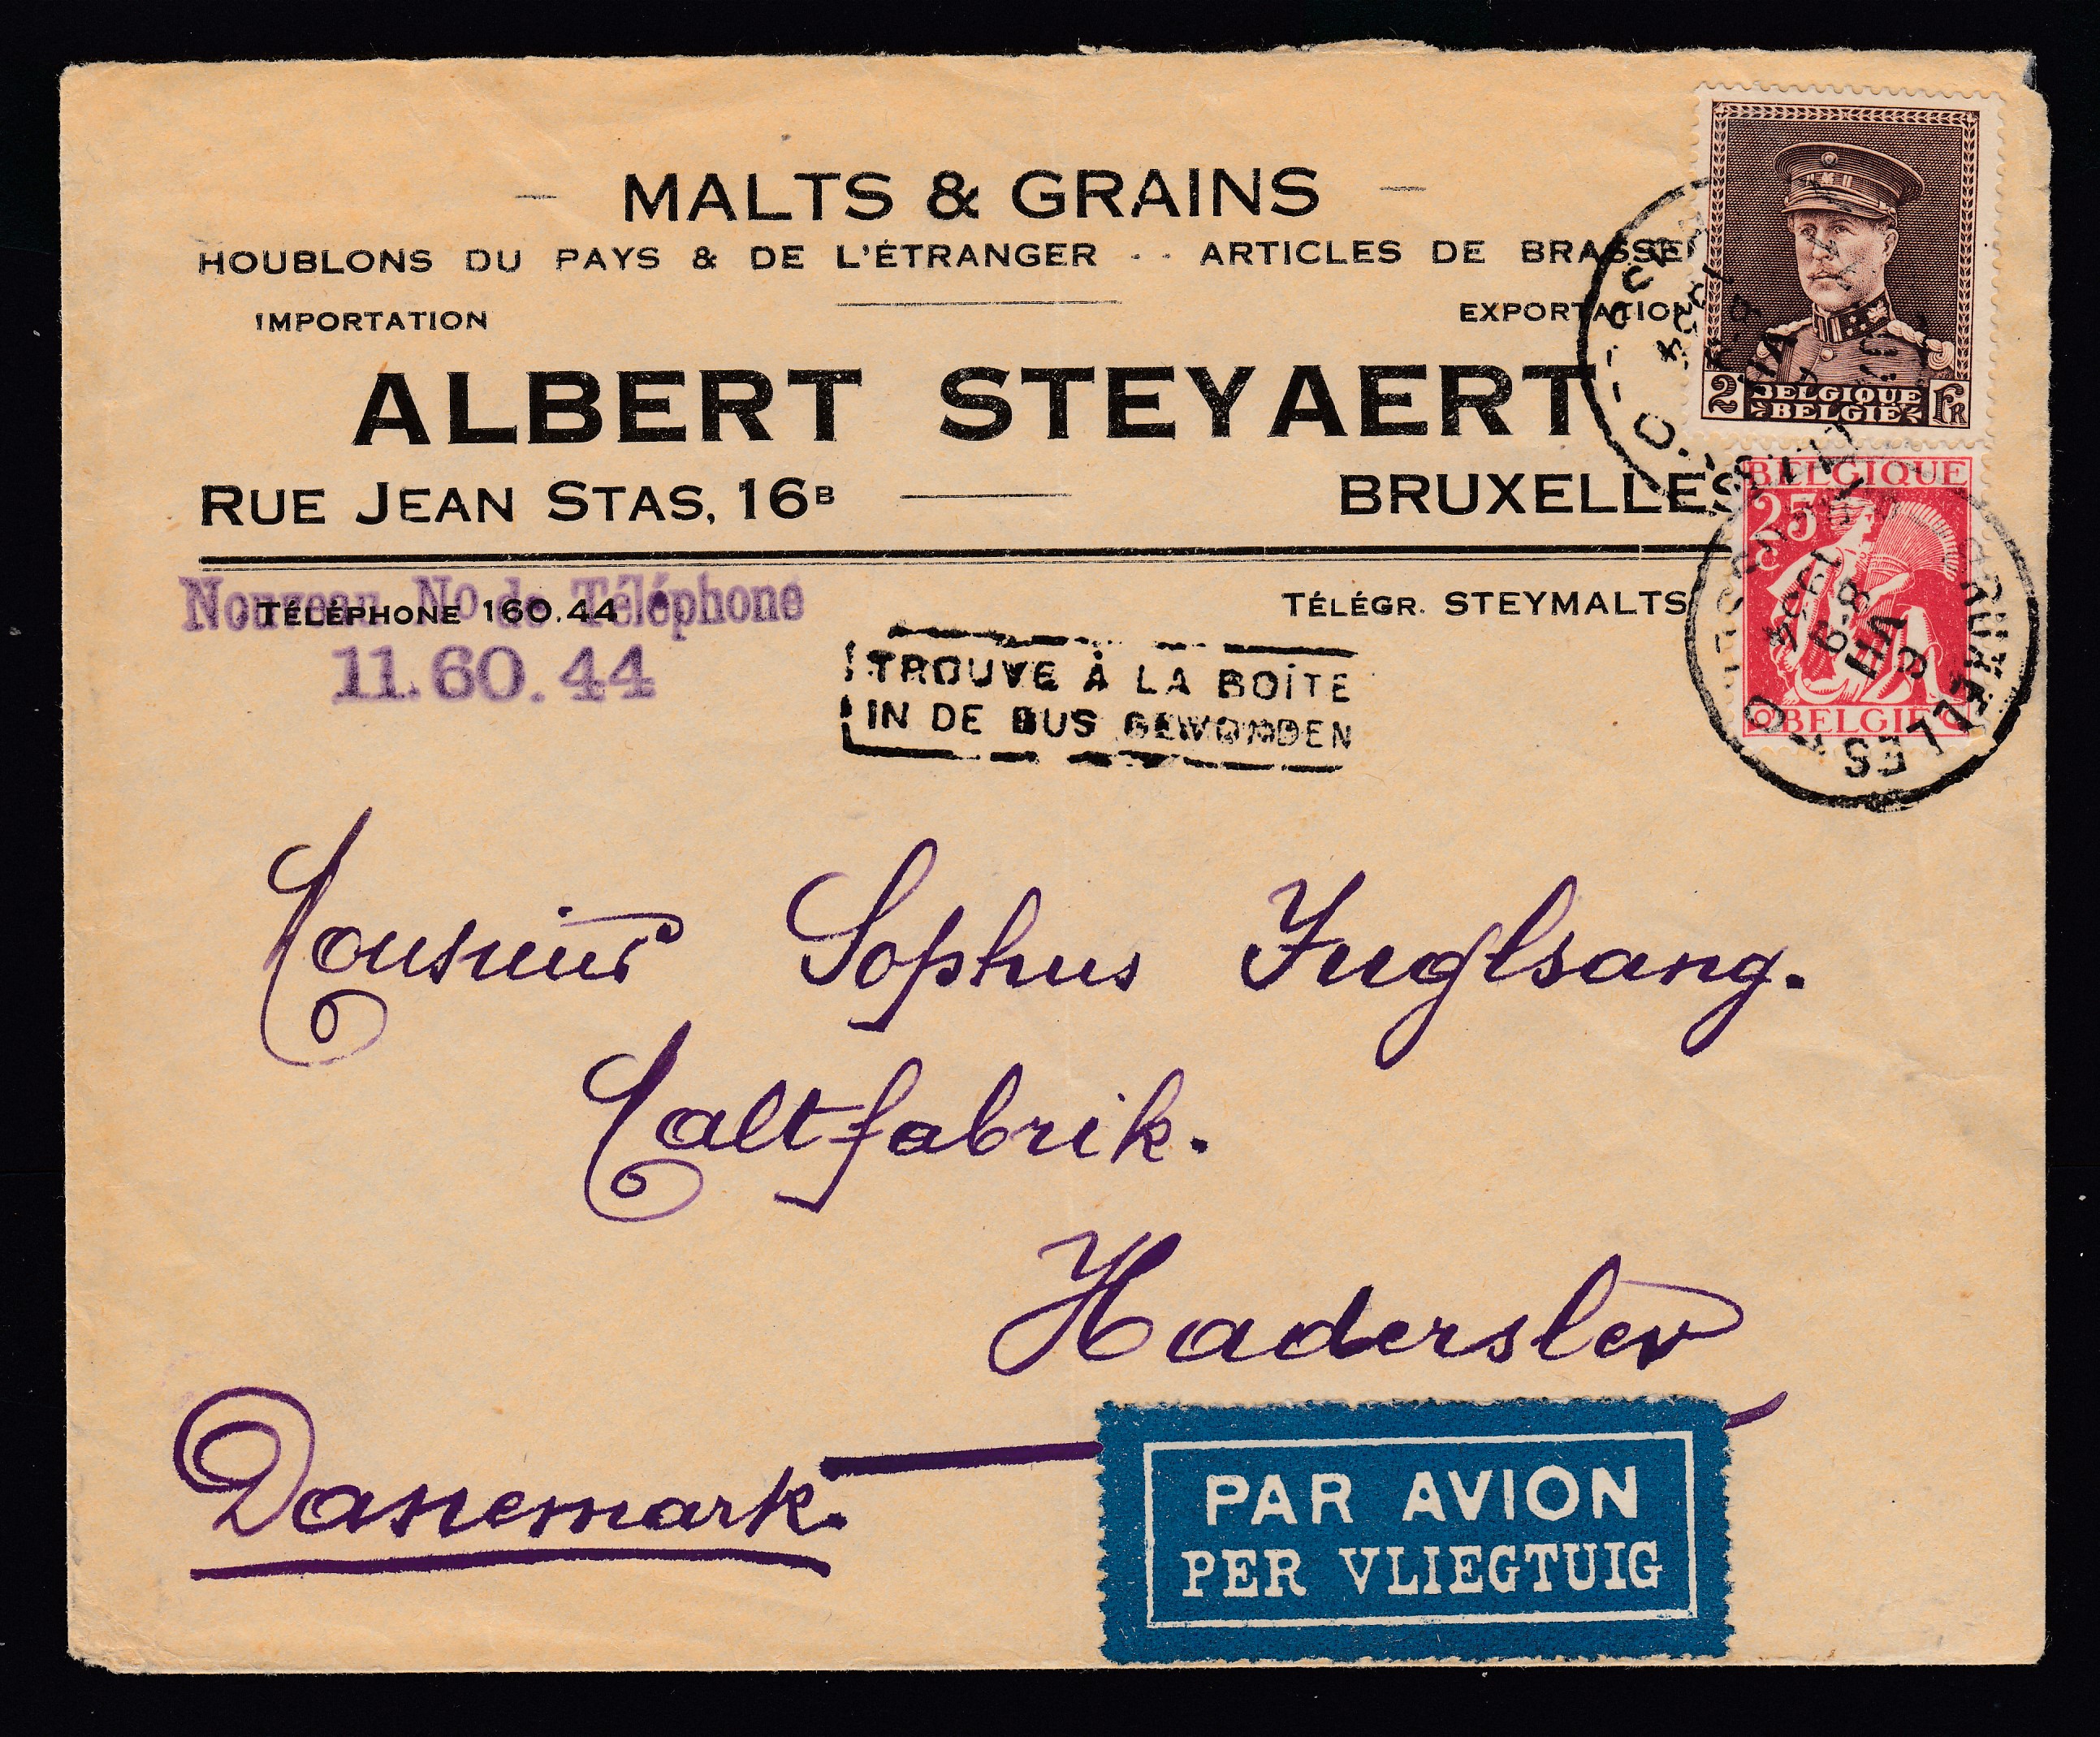 MALTS & GRAINS
HOUBLONS DU PAYS & DE L'ÉTRANGER - - ARTICLES DE BRASSE
IMPORTATION EXPORTATION
ALBERT STEYAERT
RUE JEAN STAS, 16B BRUXELLES
Nouveau No de Téléphone
TÉLÉPHONE 160.44 TÉLÉGR. STEYMALTS
11.60.44
TROUVE À LA BOITE
IN DE BUS GEWONDEN
2 BELGIQUE FR
BELGIË
BELGIQUE
25 C
BELGIË
BRUXELLES
1934
6-8
VII
9
Monsieur Sophus Fuglsang.
Maltfabrik.
Haderslev
Danemark.
PAR AVION
PER VLIEGTUIG